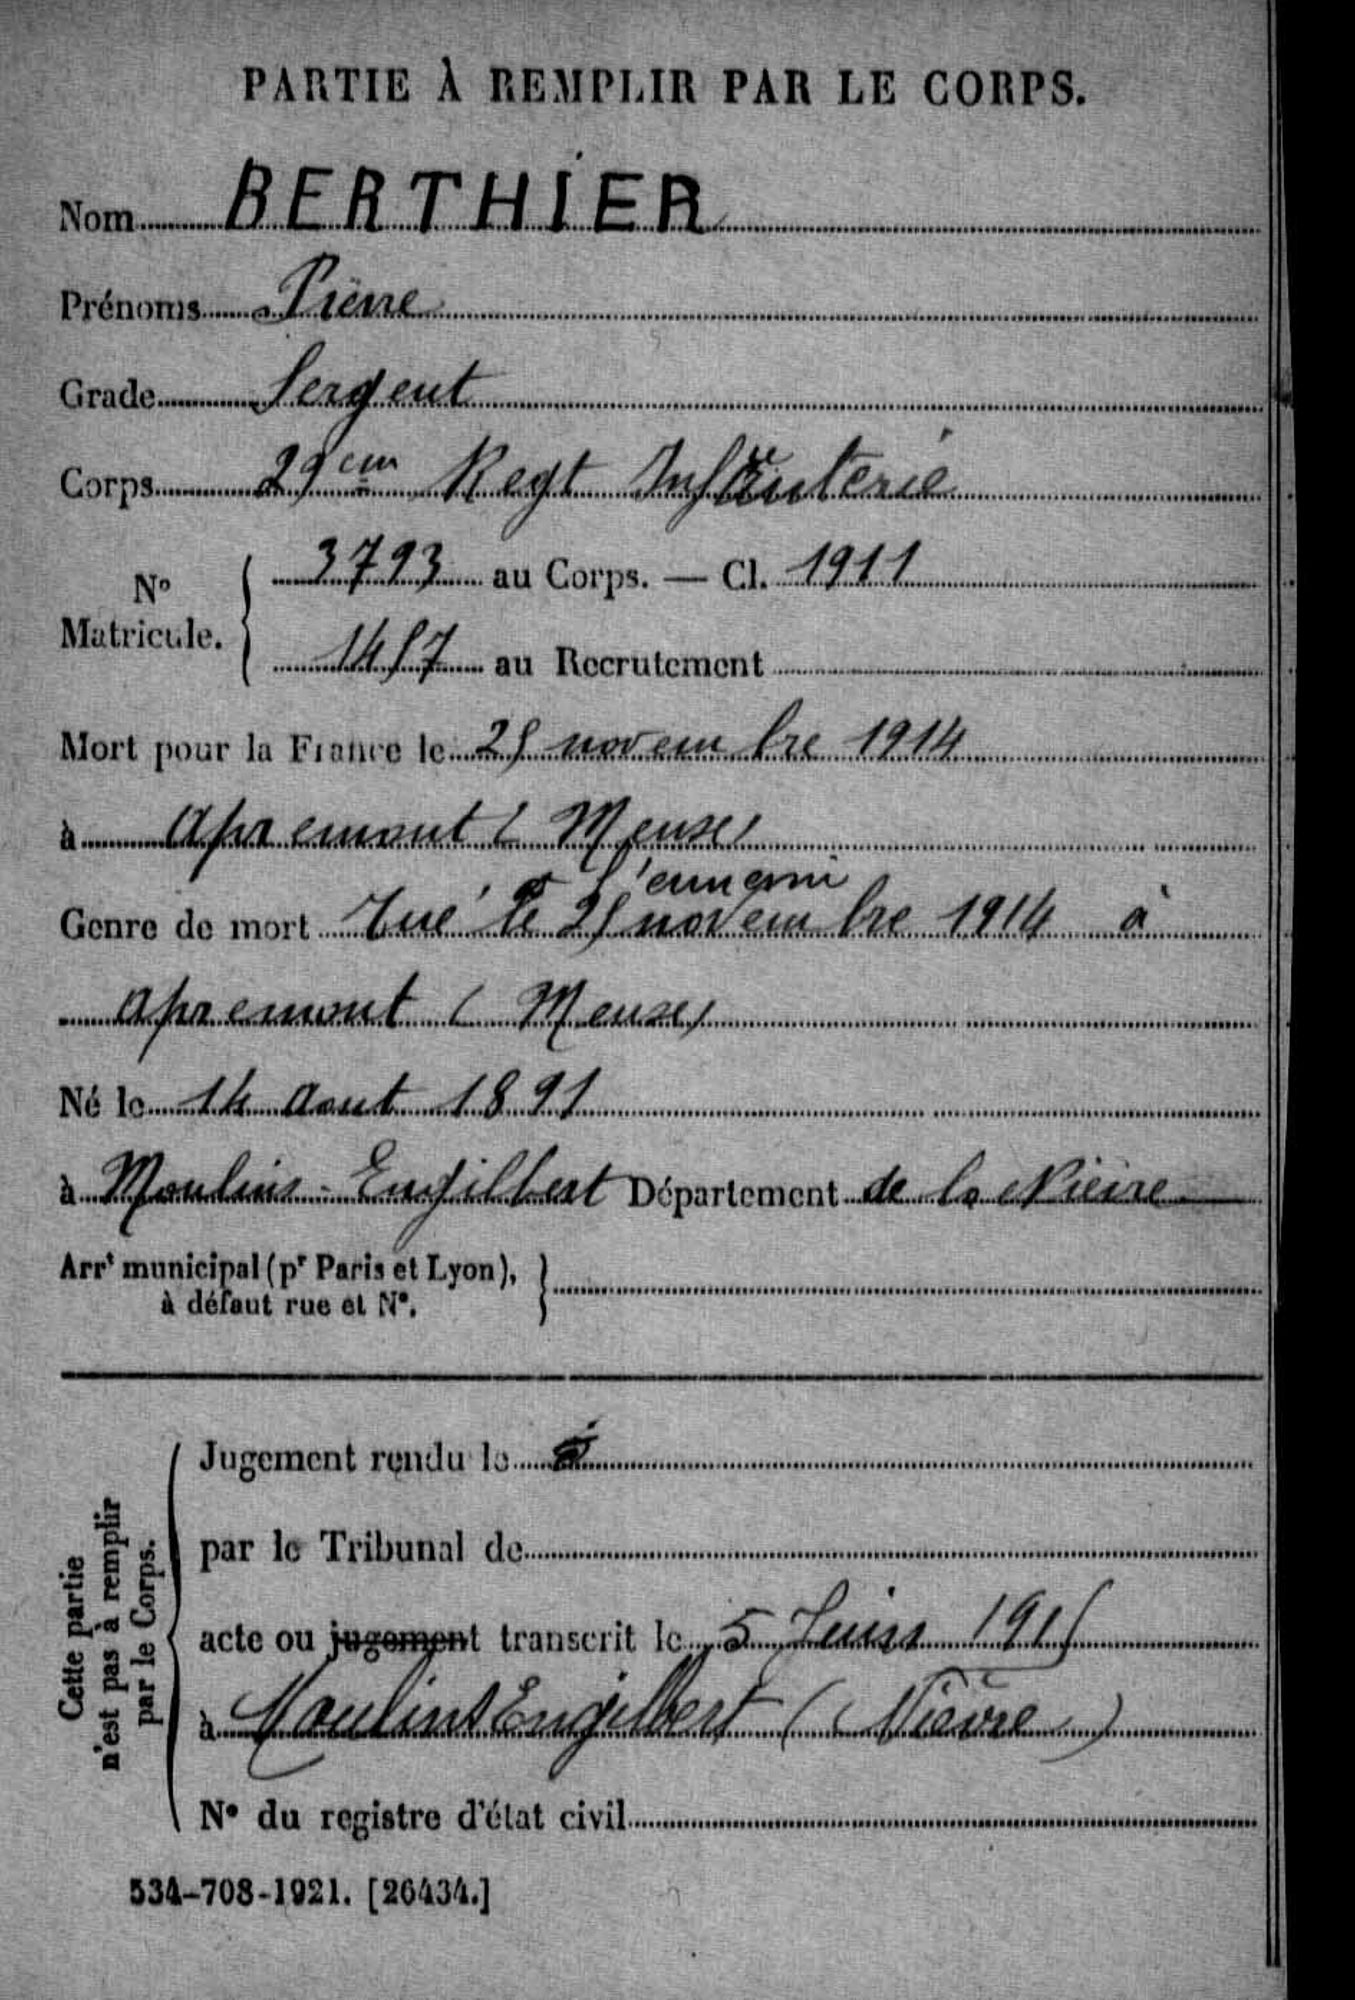 PARTIE À REMPLIR PAR LE CORPS.
Nom BERTHIER
Prénoms Pierre
Grade Sergent
Corps 29em Regt Infanterie
N° Matricule. { 3793 au Corps. — Cl. 1911
1457 au Recrutement
Mort pour la France le 25 novembre 1914
à apremont (Meuse)
à l'ennemi
Genre de mort Tué le 25 novembre 1914 à
apremont (Meuse)
Né le 14 aout 1891
à Moulins-Engilbert Département de la Nièvre
Arrt municipal (pr Paris et Lyon), à défaut rue et N°. }
Cette partie n'est pas à remplir par le Corps.
Jugement rendu le
par le Tribunal de
acte ou jugement transcrit le 5 Juin 1915
à Moulins Engilbert (Nièvre)
N° du registre d'état civil
534-708-1921. [26434.]